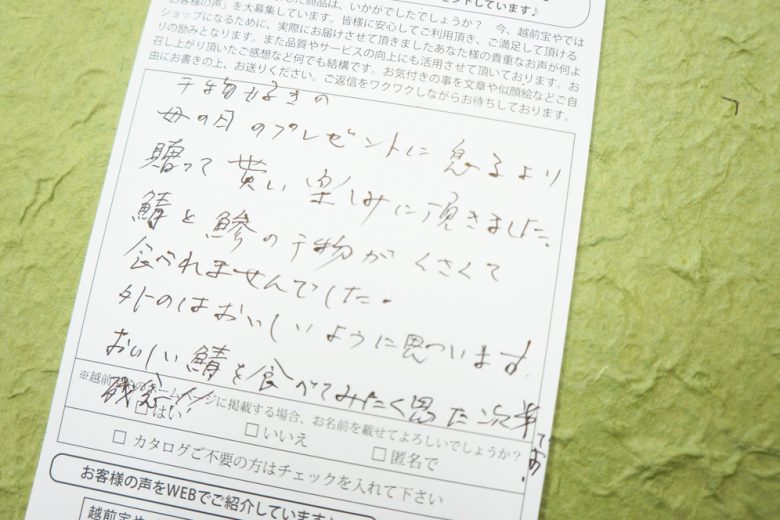 した商品は、いかがでしたでしょうか? 今、越前宝やでは
"お客様の声"を大募集しています。皆様に安心してご利用頂き、ご満足して頂ける
ショップになるために、実際にお届けさせて頂きましたあなた様の貴重なお声が何よ
りの励みとなります。また品質やサービスの向上にも活用させて頂いております。お
召し上がり頂いたご感想など何でも結構です。お気付きの事を文章や似顔絵などご自
由にお書きの上、お送りください。ご返信をワクワクしながらお待ちしております。
干物好きの
母の日のプレゼントに息子より
贈って貰い楽しみに頂きました、
鯖と鰺の干物がくさくて
食べれませんでした。
外のはおいしいように思っいます.
おいしい鯖を食べてみたく思った次第
※越前 ホームページに掲載する場合、お名前を載せてよろしいでしょうか?
□ はい
□ いいえ
□ 匿名で
□ カタログご不要の方はチェックを入れて下さい
お客様の声をWEBでご紹介しています♪
越前宝や